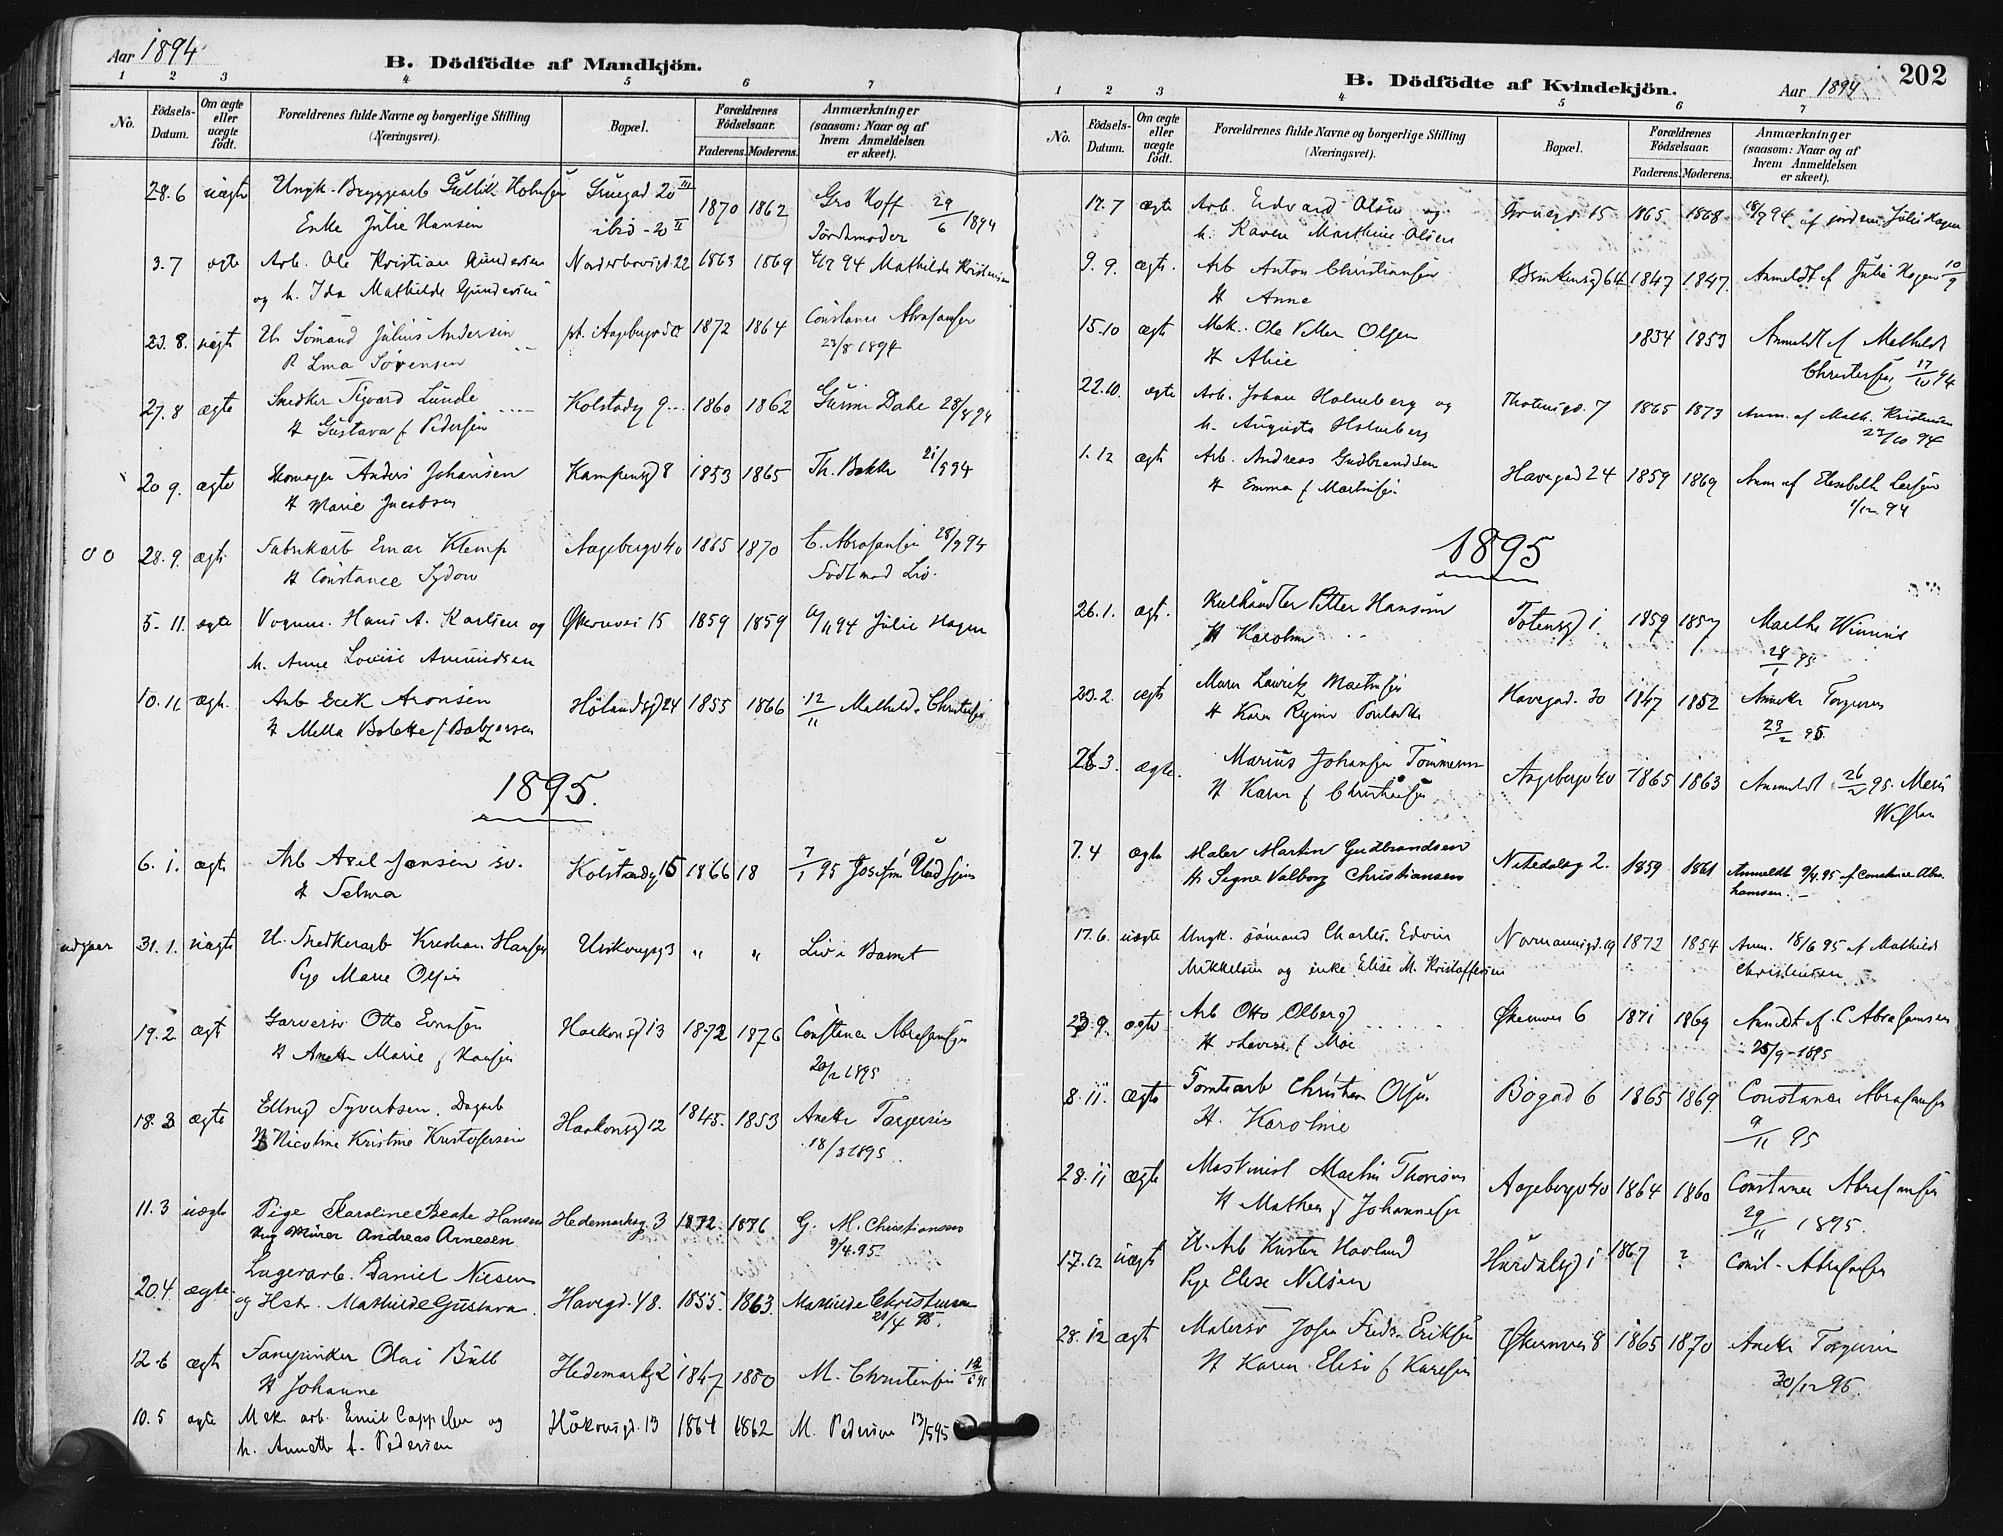 Aar 1894
B. Dödfödte af Mandkjön.
1 2 3 4 5 6 7
No. Födsels-Datum. Om ægte eller uægte födt. Forældrenes fulde Navne og borgerlige Stilling (Næringsvei). Bopæl. Forældrenes Födselsaar. Faderens. Moderens. Anmærkninger (saasom: Naar og af hvem Anmeldelsen er skeet).
28.6 uægte Ungk. Bryggearb Gullik Holmsen Gruegad 20 III 1870 1862 Gro Hoff 29/6 1894
Enke Julie Hansen ibid - 20 II Jordmoder
3.7 ægte Arb. Ole Kristian Gundersen 22 1863 1869 94 Mathilde Kristensen
og h. Ida Mathilde Gundersen
23.8. uægte U. Sömand Julius Andersen pt. Aagebergvd 1872 1864 Constance Abrahamsen
P Sørensen 23/8 1894
27.8 ægte Snedker Sigvard Lunde Kolstadg 9 1860 1862 Gunni Dahl 28/8 94
H Gustava f Pedersen
20 9. ægte Skomager Anders Johansen Kampensgd 8 1853 1865 Th. Bakke 21/9 94
H Marie Jacobsen
0 0 28.9. ægte Fabrikarb Einar Klemp Aagebergv 40 1865 1870 C. Abrahamsen 28/9 94
H Constance Sydow Födt med Liv.
5. 11. ægte Vognm. Hans A. Karlsen og Økernvei 15 1859 1859 94 Julie Hagen
h. Anne Lovise Amundsen
10.11 ægte Arb Erik Aronsen Hölandsgd 24 1855 1866 12/11 Mathilde Christensen
H Mella Bolette f
1895.
6. 1. ægte Arb Axel Jensen sv. Kolstadg 15 1866 18 7/1 95 Josefine
H Selma
udgaar 31. 1. uægte U. Snedkerarb Kristian Hansen 3 " " Liv i Barnet
Pige Marie Olsen
19.2 ægt Garversv Otto Evensen Haakonsgd 13 1872 1876 Constance Abrahamsen
H Anette Marie f Hansen 20/2 1895
18.3 ægte Syvertsen. Dagarb Haakonsgd 12 1845. 1853 Anette Torgersen
H Nicoline Kristine Kristofersen 18/3 1895
11.3 uægte Pige Karoline Beate Hansen Hedemarksg. 3 1872. 1876 G. M. Christiansen
Ung Murer Andreas Arnesen 9/4.95.
20.4 ægte Lagerarb. Daniel Nilsen
og Hstr. Mathilde Gustava. Havegd. 48. 1855. 1863. Mathilde Christensen 20/4 95.
12.6 ægte Olai Bull Hedemarkg 2 1847 1850 M. Christensen 12/6 95
H Johanne
10.5 ægte Mek arb. Emil Cappelen og Håkonsgd. 13 1864 1862 M. Pedersen 13/5 95
h. Annette f. Pedersen
B. Dödfödte af Kvindekjön.
Aar 1894
202
1 2 3 4 5 6 7
No. Födsels-Datum. Om ægte eller uægte födt. Forældrenes fulde Navne og borgerlige Stilling (Næringsvei). Bopæl. Forældrenes Födselsaar. Faderens. Moderens. Anmærkninger (saasom: Naar og af hvem Anmeldelsen er skeet).
17.7 ægte Arb. Edvard Olsen og Gruegd. 15 1865 1868 94 af jordem. Julie Hagen
h. Karen Marthine Olsen
9. 9. ægte. Arb Anton Christiansen 64 1847 1847. Anmeldt af Julie Hagen 10/9
H Anne
15.10 ægte Mek. Ole Olsen 1854 1853 Anmeldt af Mathilde
H Alice Christensen 17/10 94
22.10. ægte Arb. Johan Holmberg og Thotensgd. 7 1865 1873 Anm. af Math. Kristensen
h. Augusta Holmberg 23/10 94
1.12 ægte Arb. Andreas Gudbrandsen Havegad 24 1859 1869 Anm af Elisabeth Larsen
H Emma f Martinsen 1/12 94
1895
26.1. ægt. Kulhandler Petter Hansen Totensgd 1 1859 1857 Marthe
H Karoline 28/1 95
23.2. ægte Murer Lauritz Martinsen Havegad. 30 1847 1852 Anette Torgersen
H Karen Regine 23/2 95.
26.3. ægte. Marius Johansen Tömmerm Aagebergv 40 1865 1863 Anmeldt 26/2 95. Marie
H Karen f Christensen
7.4 ægte Maler Martin Gudbrandsen Nitedalsg 2. 1859 1861 Anmeldt 9/4.95 af Constance Abra-
H. Signe Valborg Christiansen hamsen.
17.6. uægte Ungk. sömand Charles. Edvin Normannsgd. 19 1872 1854 Anm. 18/6 95 af Mathilde
Mikkelsen og enke Elise M. Kristoffersen Christensen
23.9. ægte Arb Otto Olberg Økernvei 6 1871 1869 Anmeldt af. C Abrahamsen
H Lovise f Moe 25/9-1895
8.11. ægte Tomtearb Christian Olsen Bögad 6 1865 1869. Constance Abrahamsen
H. Karoline 9/11 95
28.11 ægte Maskinist Martin Thoresen Aagebergv 40 1864 1860 Constance Abrahamsen
H Mathea f Johannesen 29/11 1895.
17.12 uægt U. Arb Havland Hurdalsgd 1 1867 ? Const. Abrahamsen
Pige Elise Nilsen
28.12 ægt Malersv Johan Fredr. Eriksen Økernvei 8 1865 1870 Anette Torgersen
H Karen Elise f Karlsen 30/12 95.